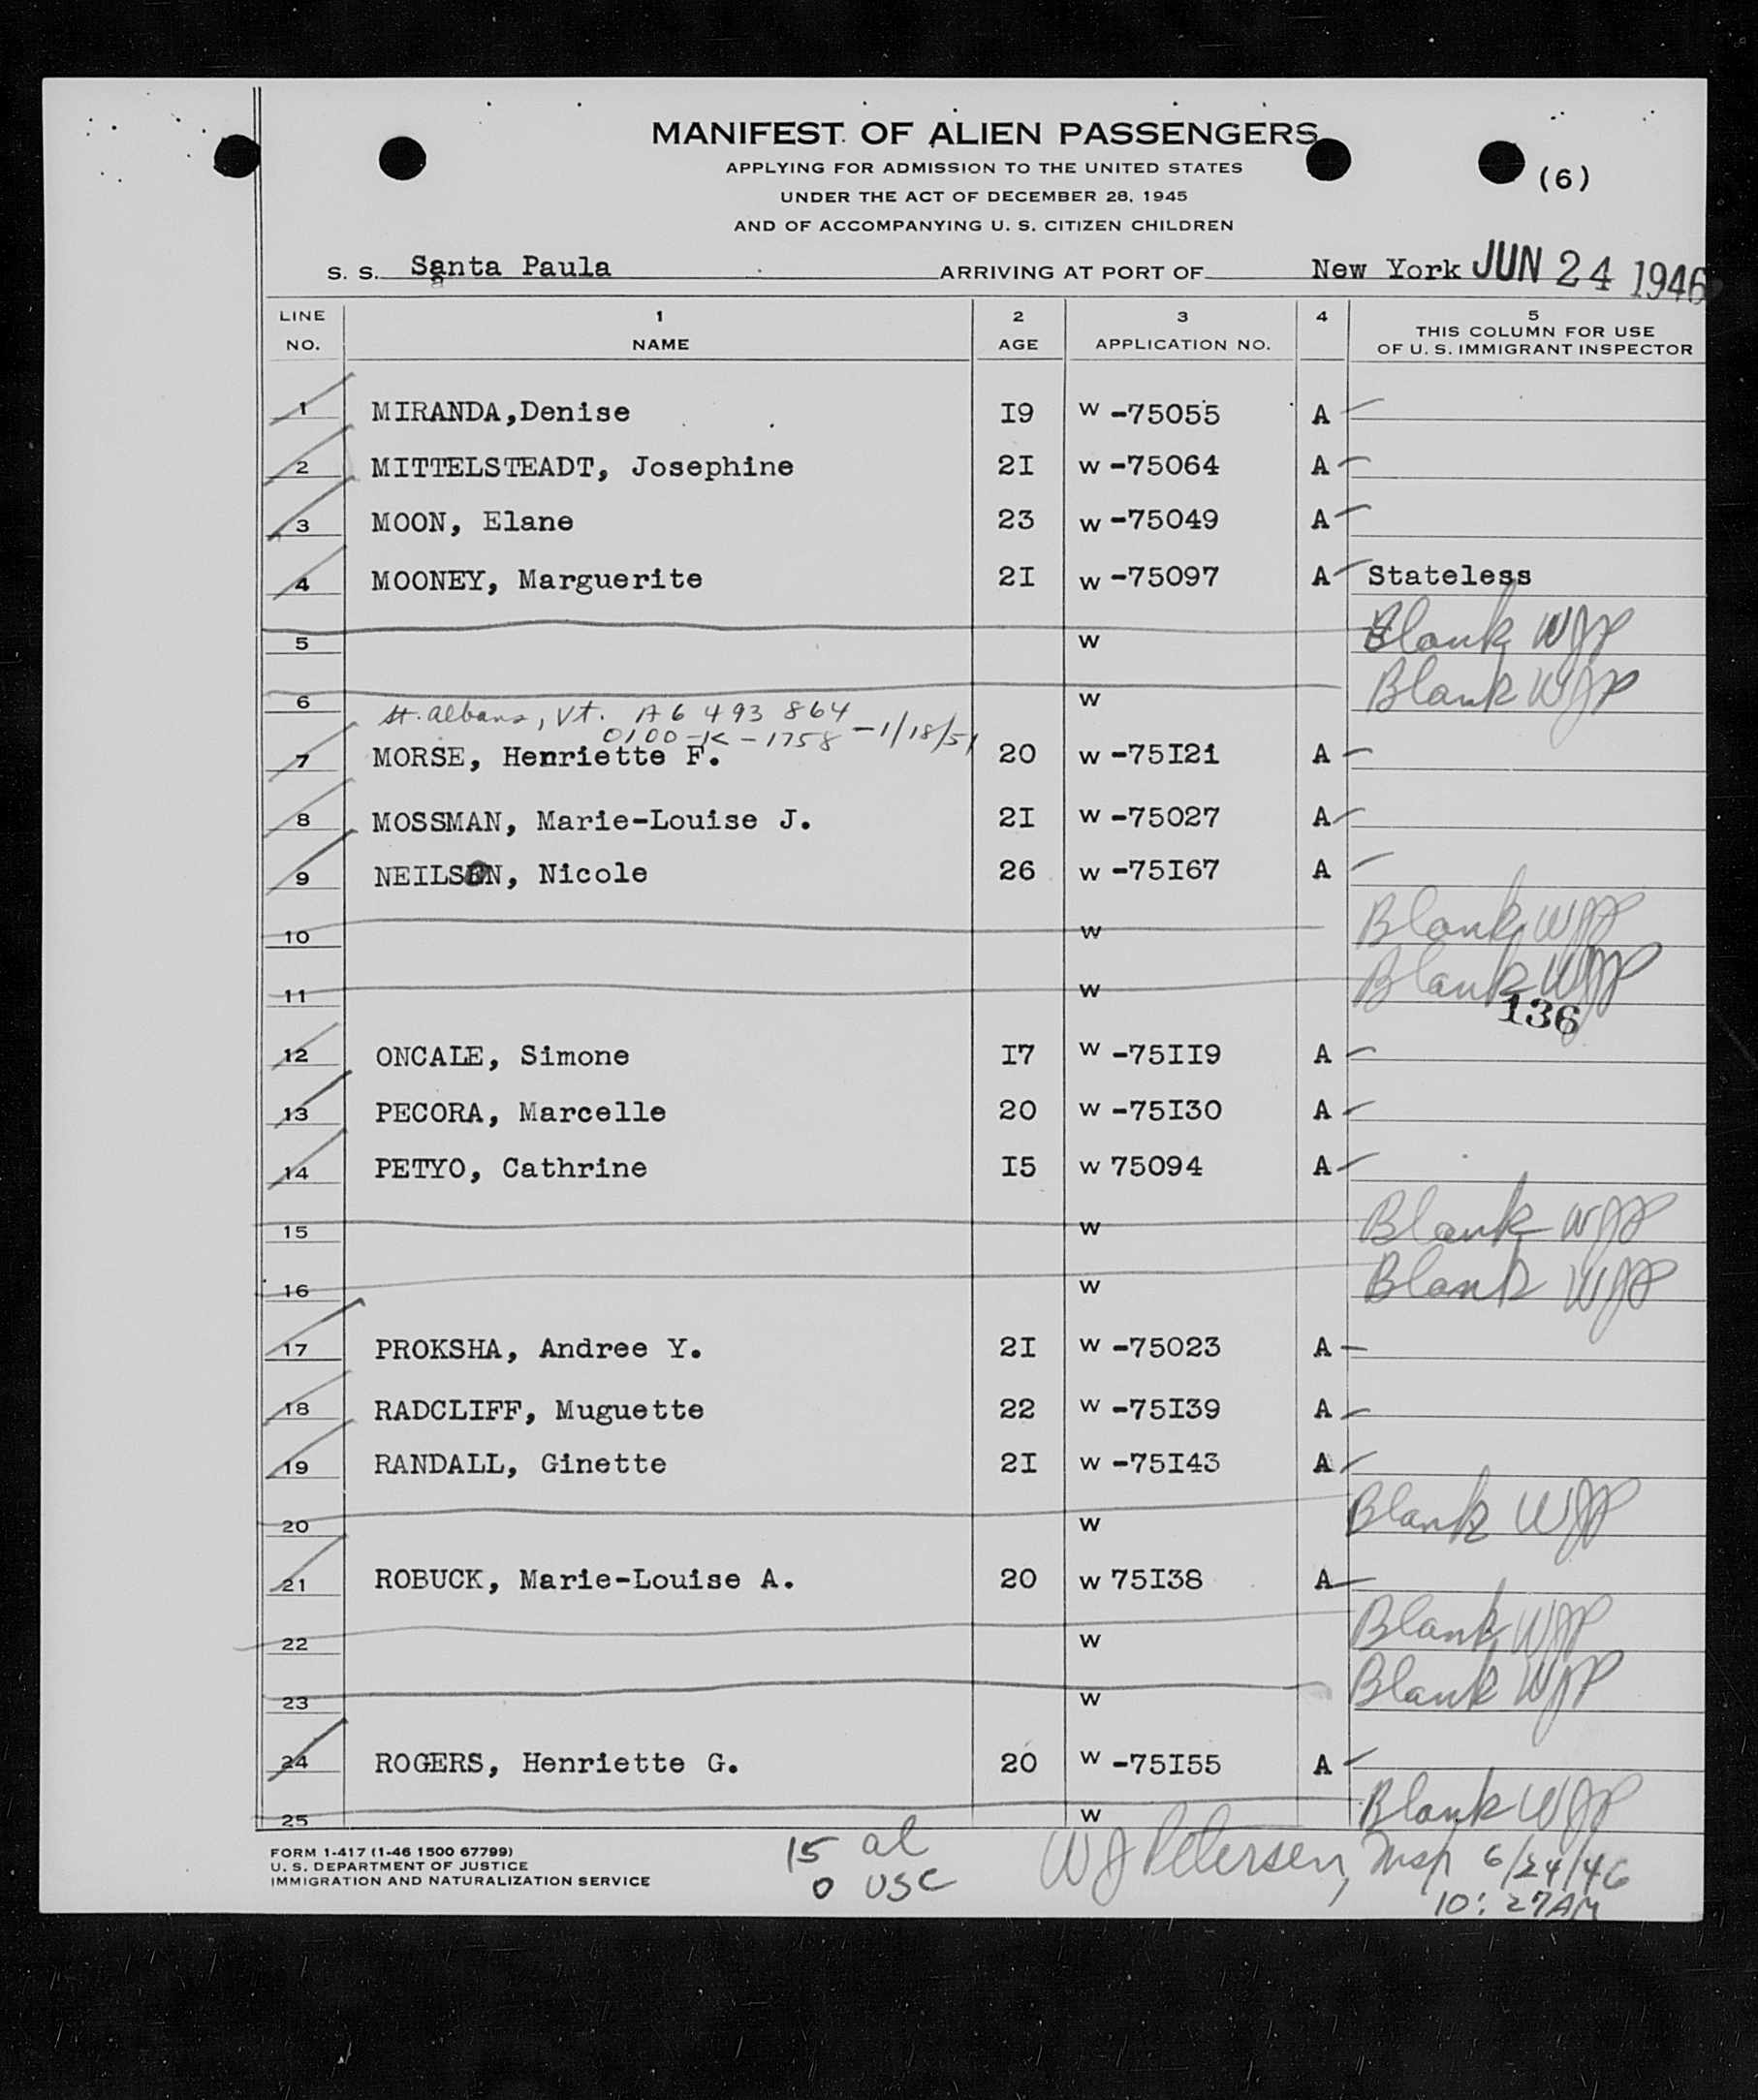 MANIFEST OF ALIEN PASSENGERS
APPLYING FOR ADMISSION TO THE UNITED STATES
UNDER THE ACT OF DECEMBER 28, 1945
AND OF ACCOMPANYING U. S. CITIZEN CHILDREN
(6)
S. S. Santa Paula ARRIVING AT PORT OF New York JUN 24 1946
LINE NO. 1 NAME 2 AGE 3 APPLICATION NO. 4 5 THIS COLUMN FOR USE OF U. S. IMMIGRANT INSPECTOR
1 MIRANDA,Denise I9 W -75055 A
2 MITTELSTEADT, Josephine 2I W -75064 A
3 MOON, Elane 23 W -75049 A
4 MOONEY, Marguerite 2I W -75097 A Stateless
5 W Blank WJP
6 W Blank WJP
St. Albans, Vt. A6 493 864
0100-K-1758 -1/18/51
7 MORSE, Henriette F. 20 W -75I21 A
8 MOSSMAN, Marie-Louise J. 2I W -75027 A
9 NEILSEN, Nicole 26 W -75I67 A
10 W Blank WJP
11 W Blank WJP
136
12 ONCALE, Simone I7 W -75II9 A
13 PECORA, Marcelle 20 W -75I30 A
14 PETYO, Cathrine I5 W 75094 A
15 W Blank WJP
16 W Blank WJP
17 PROKSHA, Andree Y. 2I W -75023 A
18 RADCLIFF, Muguette 22 W -75I39 A
19 RANDALL, Ginette 2I W -75I43 A
20 W Blank WJP
21 ROBUCK, Marie-Louise A. 20 W 75I38 A
22 W Blank WJP
23 W Blank WJP
24 ROGERS, Henriette G. 20 W -75I55 A
25 W Blank WJP
FORM 1-417 (1-46 1500 67799)
U. S. DEPARTMENT OF JUSTICE
IMMIGRATION AND NATURALIZATION SERVICE
15 al
0 USC
W J Petersen, Insp 6/24/46
10:27AM